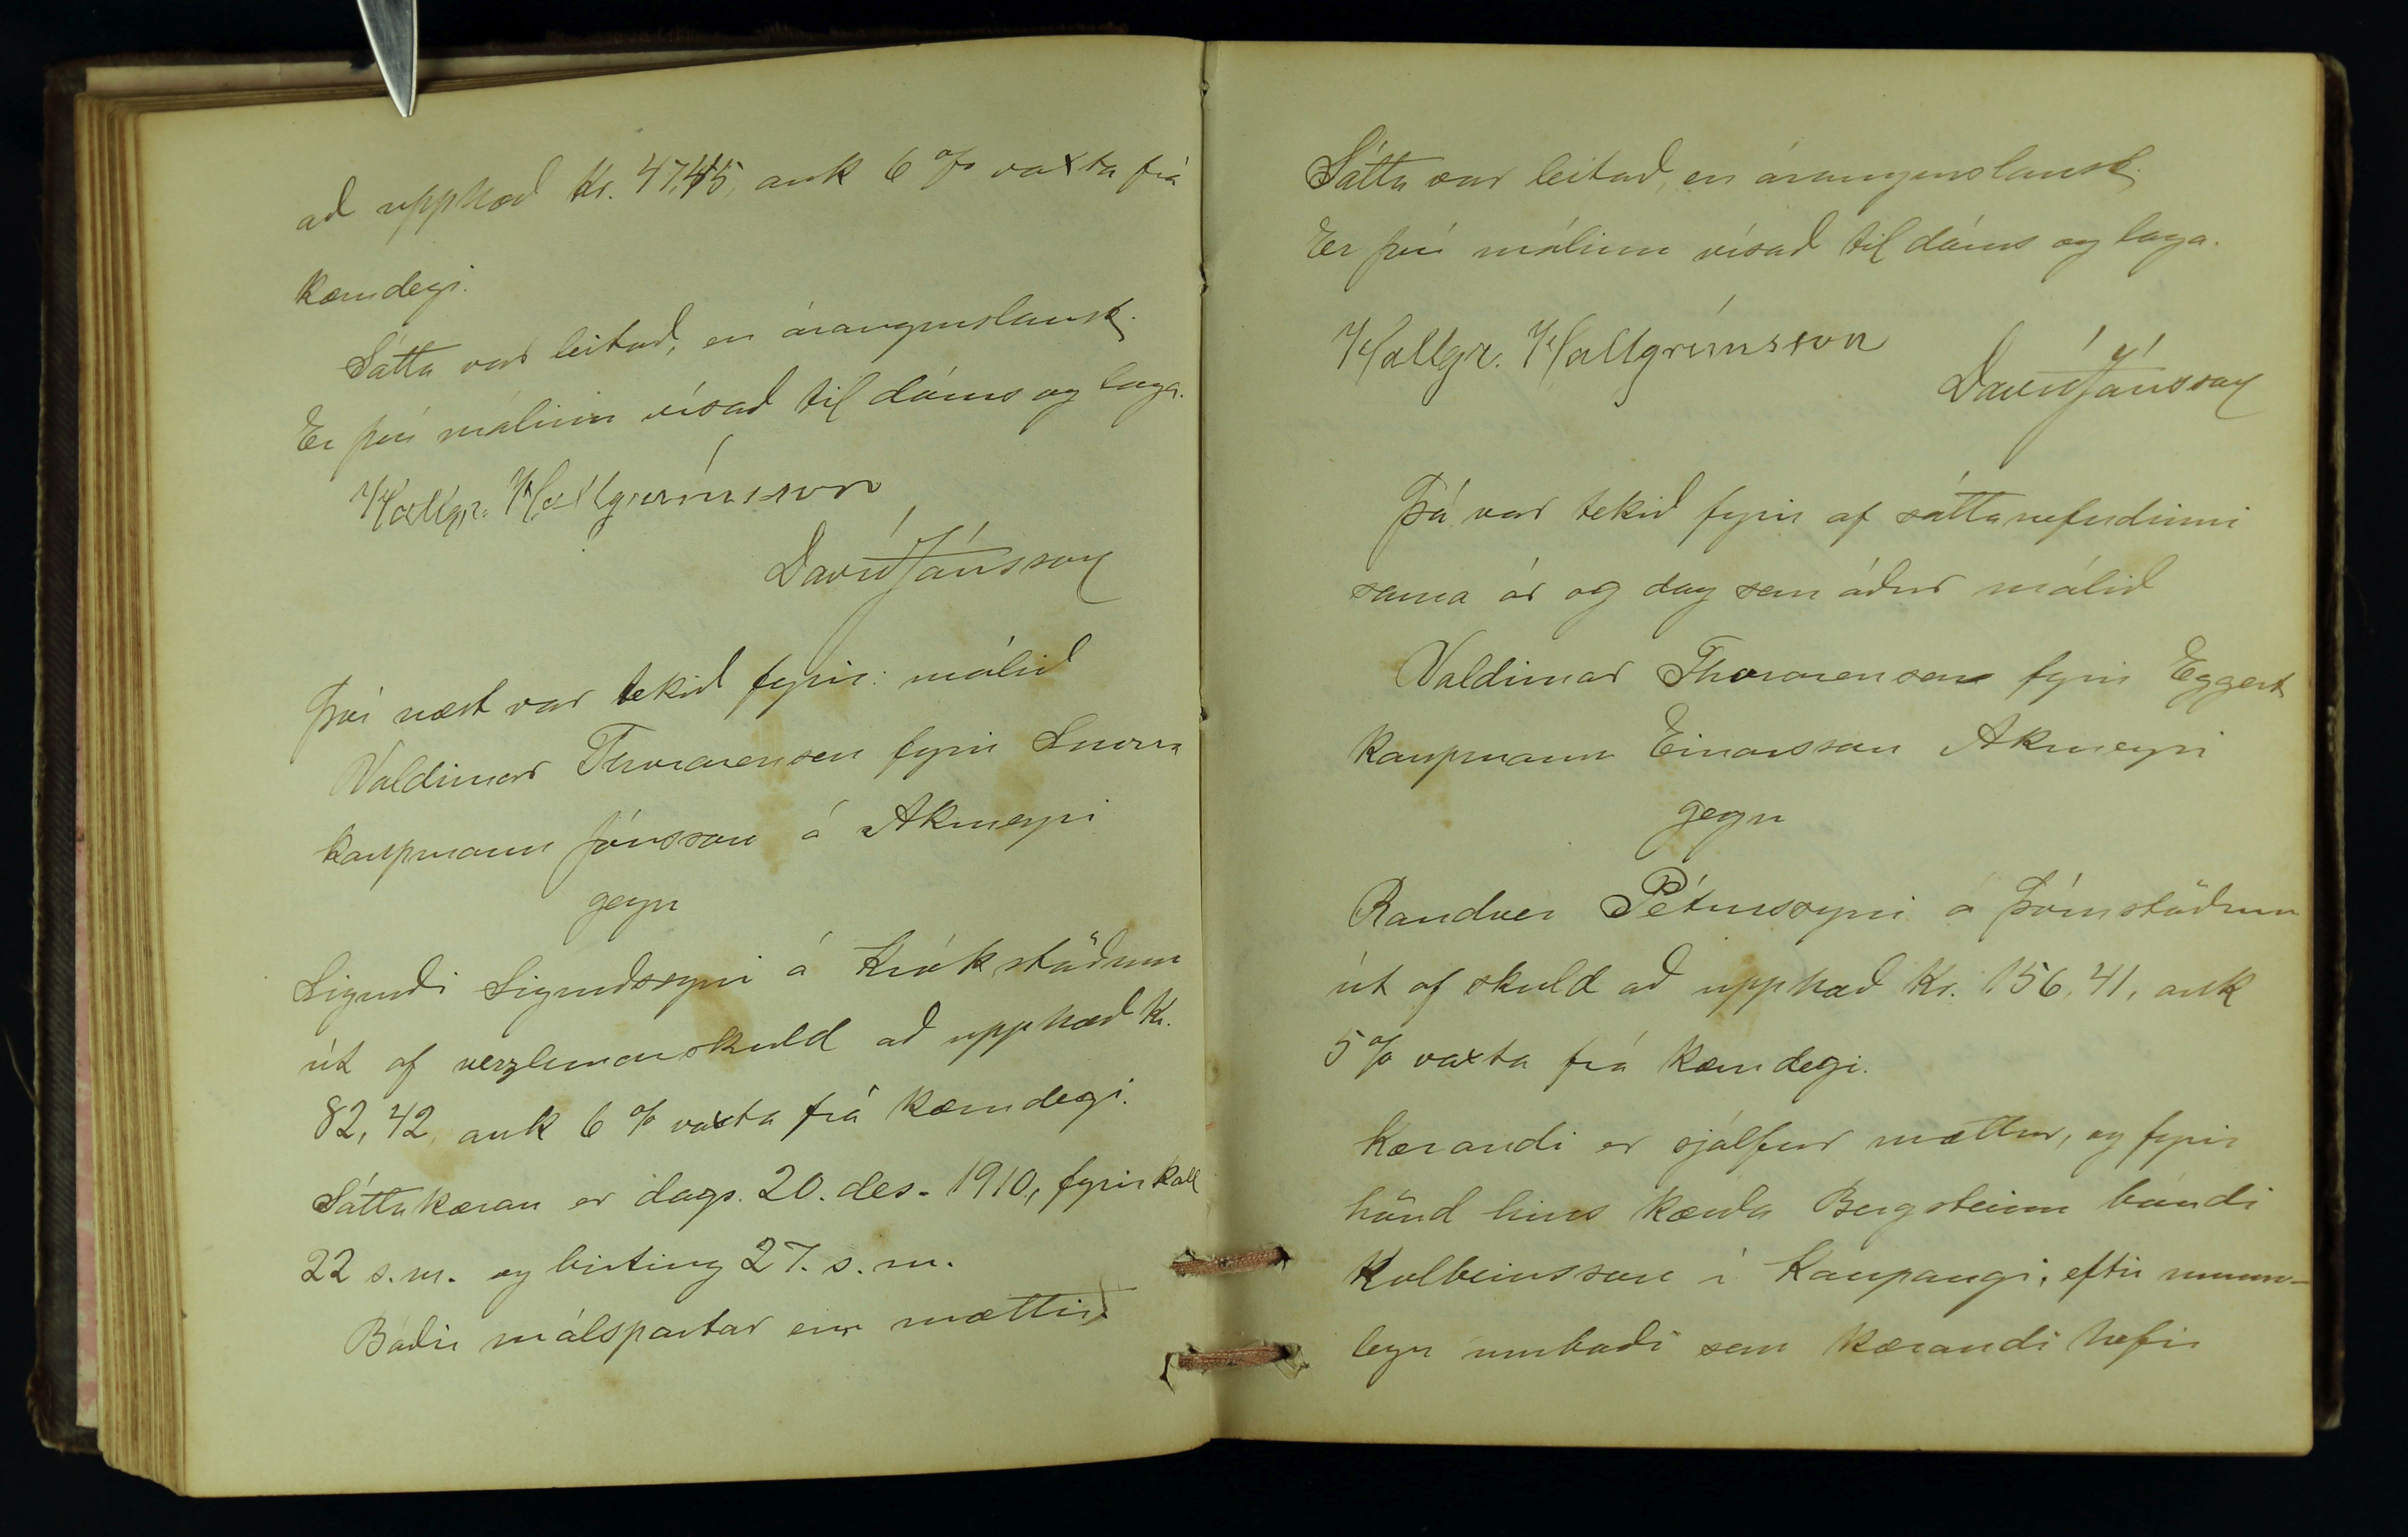 að upphæð Kr. 47,45, auk 6 % vaxta frá
kærudegi.
Sátta var leitað, en árangurslaust.
Er því málinu vísað til dóms og laga.
Hallgr. Hallgrímsson
Davíð Jónsson
Því næst var tekið fyrir: málið
Valdimar Thorarensen fyrir Snorra
kaupmann Jónsson á Akureyri
gegn
Sigurði Sigurðssyni á Krókstöðum
út af verzlunarskuld að upphæð Kr.
82,42, auk 6 % vaxta frá kærudegi.
Sáttakæran er dags. 20. des. 1910, fyrirkall
22 s.m. og birting 27. s.m.
Báðir málspartar eru mættir.
Sátta var leitað, en árangurslaust.
Er því málinu vísað til dóms og laga.
Hallgr. Hallgrímsson
Davíð Jónsson
Þá var tekið fyrir af sáttanefndinni
sama ár og dag sem áður málið
Valdimar Thorarensen fyrir Eggert
kaupmann Einarsson Akureyri
gegn
Randver Péturssyni á Þórustöðum
út af skuld að upphæð Kr. 156,41, auk
5 % vaxta frá kærudegi.
Kærandi er sjálfur mættur, og fyrir
hönd hins kærða Bergsteinn bóndi
Kolbeinsson í Kaupangi, eftir munn-
legu umboði sem kærandi hefir